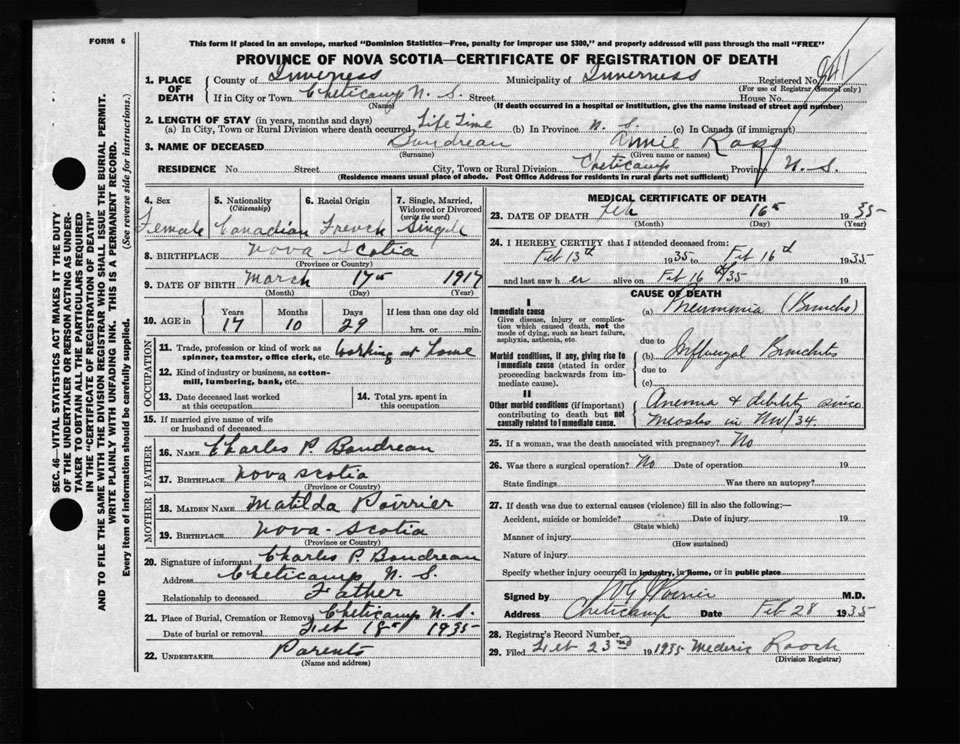 FORM 6
This form if placed in an envelope, marked "Dominion Statistics—Free, penalty for improper use $300," and properly addressed will pass through the mail "FREE"
PROVINCE OF NOVA SCOTIA—CERTIFICATE OF REGISTRATION OF DEATH
1. PLACE OF DEATH County of Inverness Municipality of Inverness Registered No.
(For use of Registrar General only)
If in City or Town Cheticamp N. S. Street House No.
(Name) (If death occurred in a hospital or institution, give the name instead of street and number)
2. LENGTH OF STAY (in years, months and days)
(a) In City, Town or Rural Division where death occurred Life Time (b) In Province N. S. (c) In Canada (if immigrant)
3. NAME OF DECEASED Boudreau Annie Rose
(Surname) (Given name or names)
RESIDENCE No Street City, Town or Rural Division Cheticamp Province N. S.
(Residence means usual place of abode. Post Office Address for residents in rural parts not sufficient)
4. Sex 5. Nationality (Citizenship) 6. Racial Origin 7. Single, Married, Widowed or Divorced (write the word)
Female Canadian French Single
8. BIRTHPLACE Nova Scotia
(Province or Country)
9. DATE OF BIRTH March 17th 1917
(Month) (Day) (Year)
10. AGE in Years Months Days If less than one day old
17 10 29 hrs. or min.
OCCUPATION
11. Trade, profession or kind of work as spinner, teamster, office clerk, etc. Working at home
12. Kind of industry or business, as cotton-mill, lumbering, bank, etc.
13. Date deceased last worked at this occupation
14. Total yrs. spent in this occupation
15. If married give name of wife or husband of deceased
FATHER
16. NAME Charles P. Boudreau
17. BIRTHPLACE Nova Scotia
(Province or Country)
MOTHER
18. MAIDEN NAME Matilda Poirrier
19. BIRTHPLACE Nova-Scotia
(Province or Country)
20. Signature of informant Charles P. Boudreau
Address Cheticamp N. S.
Relationship to deceased Father
21. Place of Burial, Cremation or Removal Cheticamp N. S.
Date of burial or removal Feb 18th 1935
22. UNDERTAKER Parents
(Name and address)
MEDICAL CERTIFICATE OF DEATH
23. DATE OF DEATH Feb 16th 1935
(Month) (Day) (Year)
24. I HEREBY CERTIFY that I attended deceased from:
Feb 13th 1935 to Feb 16th 1935
and last saw her alive on Feb 16th/35 19
CAUSE OF DEATH
I
Immediate cause
Give disease, injury or complication which caused death, not the mode of dying, such as heart failure, asphyxia, asthenia, etc.
(a) Pneumonia (Broncho)
due to
Morbid conditions, if any, giving rise to immediate cause (stated in order proceeding backwards from immediate cause).
(b) Influenzal Bronchitis
due to
(c)
II
Other morbid conditions (if important) contributing to death but not causally related to immediate cause.
Anemia & debility since
Measles in Nov/34.
25. If a woman, was the death associated with pregnancy? No
26. Was there a surgical operation? No Date of operation 19
State findings Was there an autopsy?
27. If death was due to external causes (violence) fill in also the following:—
Accident, suicide or homicide? Date of injury 19
(State which)
Manner of injury
(How sustained)
Nature of injury
Specify whether injury occurred in industry, in home, or in public place
Signed by M.D.
Address Cheticamp Date Feb 28 1935
28. Registrar's Record Number
29. Filed Feb 23rd 19 1935 Mederic Roach
(Division Registrar)
SEC. 46—VITAL STATISTICS ACT MAKES IT THE DUTY
OF THE UNDERTAKER OR PERSON ACTING AS UNDER-
TAKER TO OBTAIN ALL THE PARTICULARS REQUIRED
IN THE "CERTIFICATE OF REGISTRATION OF DEATH"
AND TO FILE THE SAME WITH THE DIVISION REGISTRAR WHO SHALL ISSUE THE BURIAL PERMIT.
WRITE PLAINLY WITH UNFADING INK. THIS IS A PERMANENT RECORD.
Every item of information should be carefully supplied. (See reverse side for instructions.)